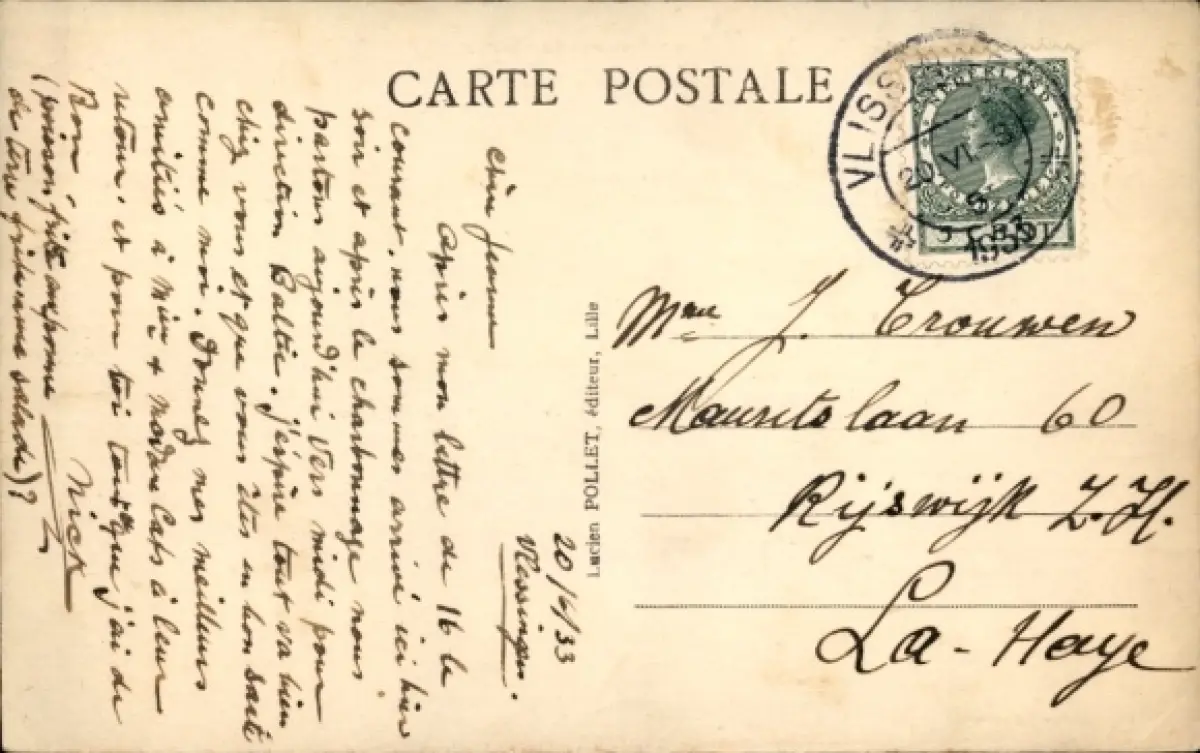 CARTE POSTALE
VLISS
20 VI. 3
1933
NEDERLAND
CENT
20/6/33
Vlessingen.
chère Jeanne
Après mon lettre de 16 le
courant, nous sommes arrivé ici hier
soir et après le charbonnage nous
partons aujourd'hui vers midi pour
direction Baltic. J'espère tout va bien
chez vous et que vous êtes en bon santé
comme moi. Donnez mes meilleurs
amitiés à & à leur
retour. et pour toi j'ai du
Bon Nick
(poisson frite
de terre frite une salade)?
Lucien POLLET, éditeur, Lille
Mme J. Trouwen
Maurits laan 60
Rijswijk Z.H.
La-Haye